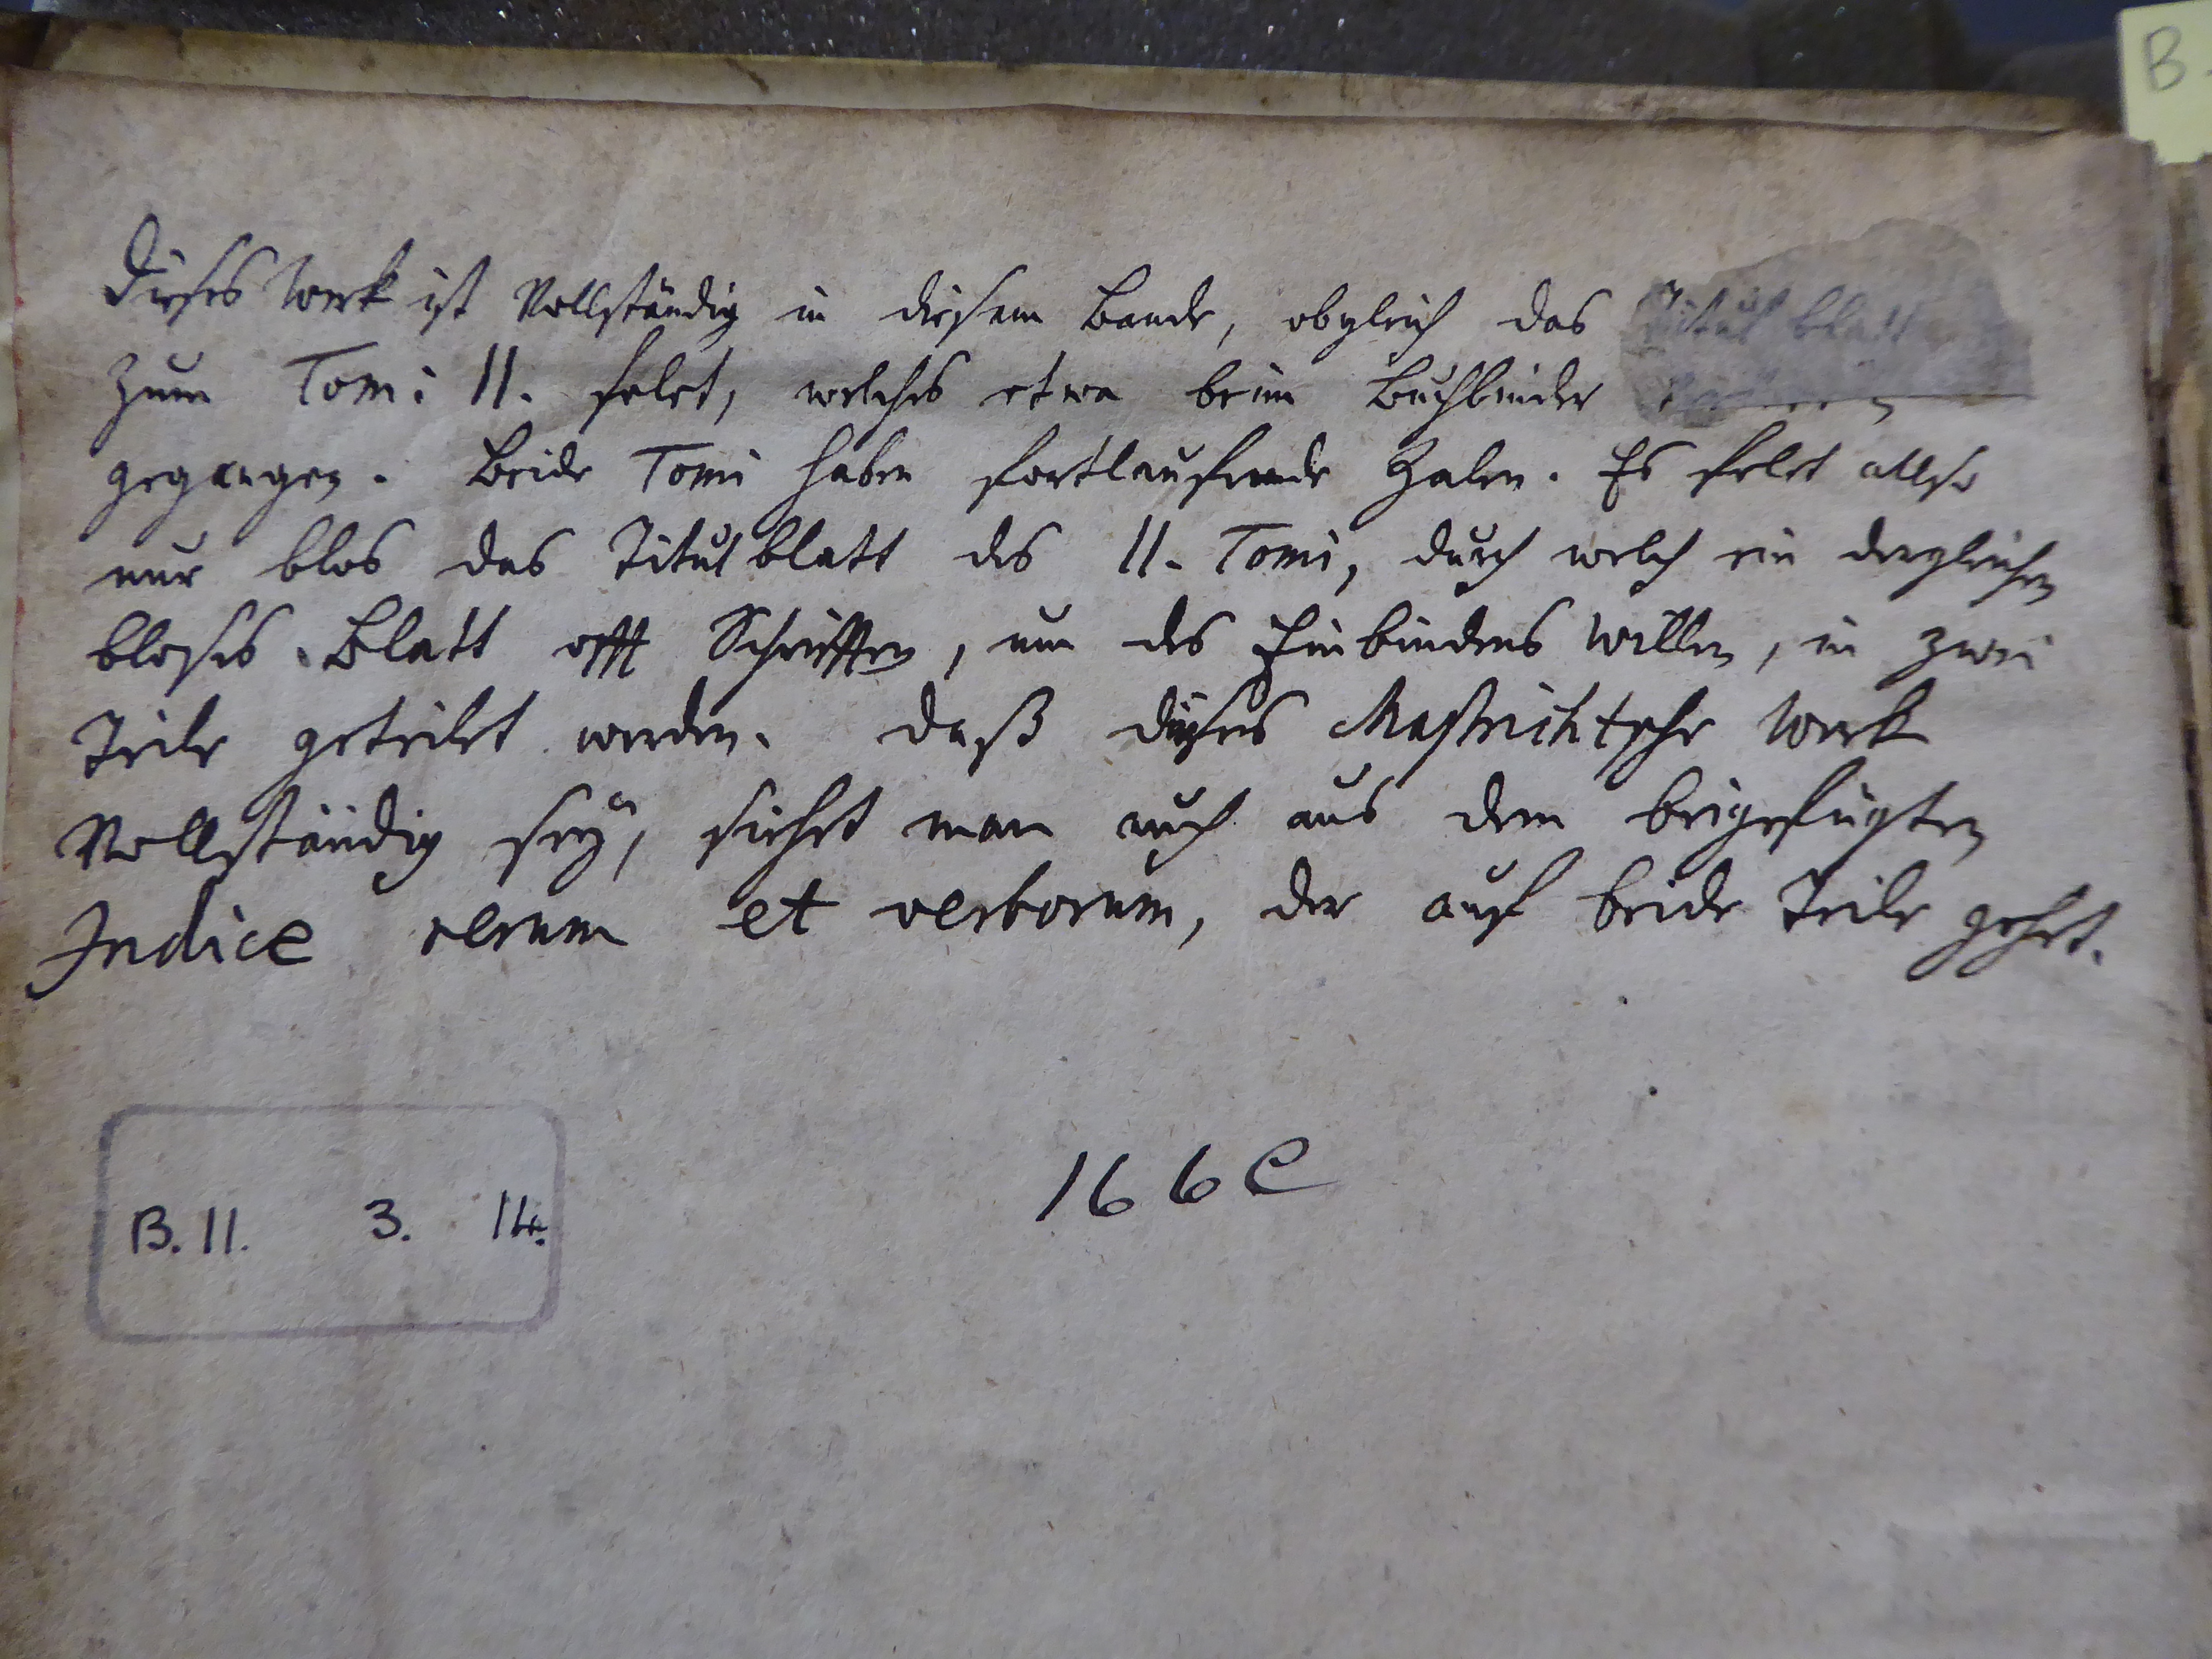 B
Dieses Werk ist Vollständig in diesem Bande, obgleich das Titul blatt
zum Tom: II. felet, welches etwa beim Buchbinder
gegangen. Beide Tomi haben fortlaufende Zalen. Es felet allso
nur blos das Titulblatt des II. Tomi, durch welch ein dergleichen
bloses Blatt offt Schrifften, um des Einbindens Willen, in zwei
Teile geteilet werden. Daß dieses Mastrichtsche Werk
Vollständig seÿ, siehet man auch aus dem beigefügten
Indice rerum et verborum, der auf beide Teile gehet.
166 C
B. II. 3. 14.